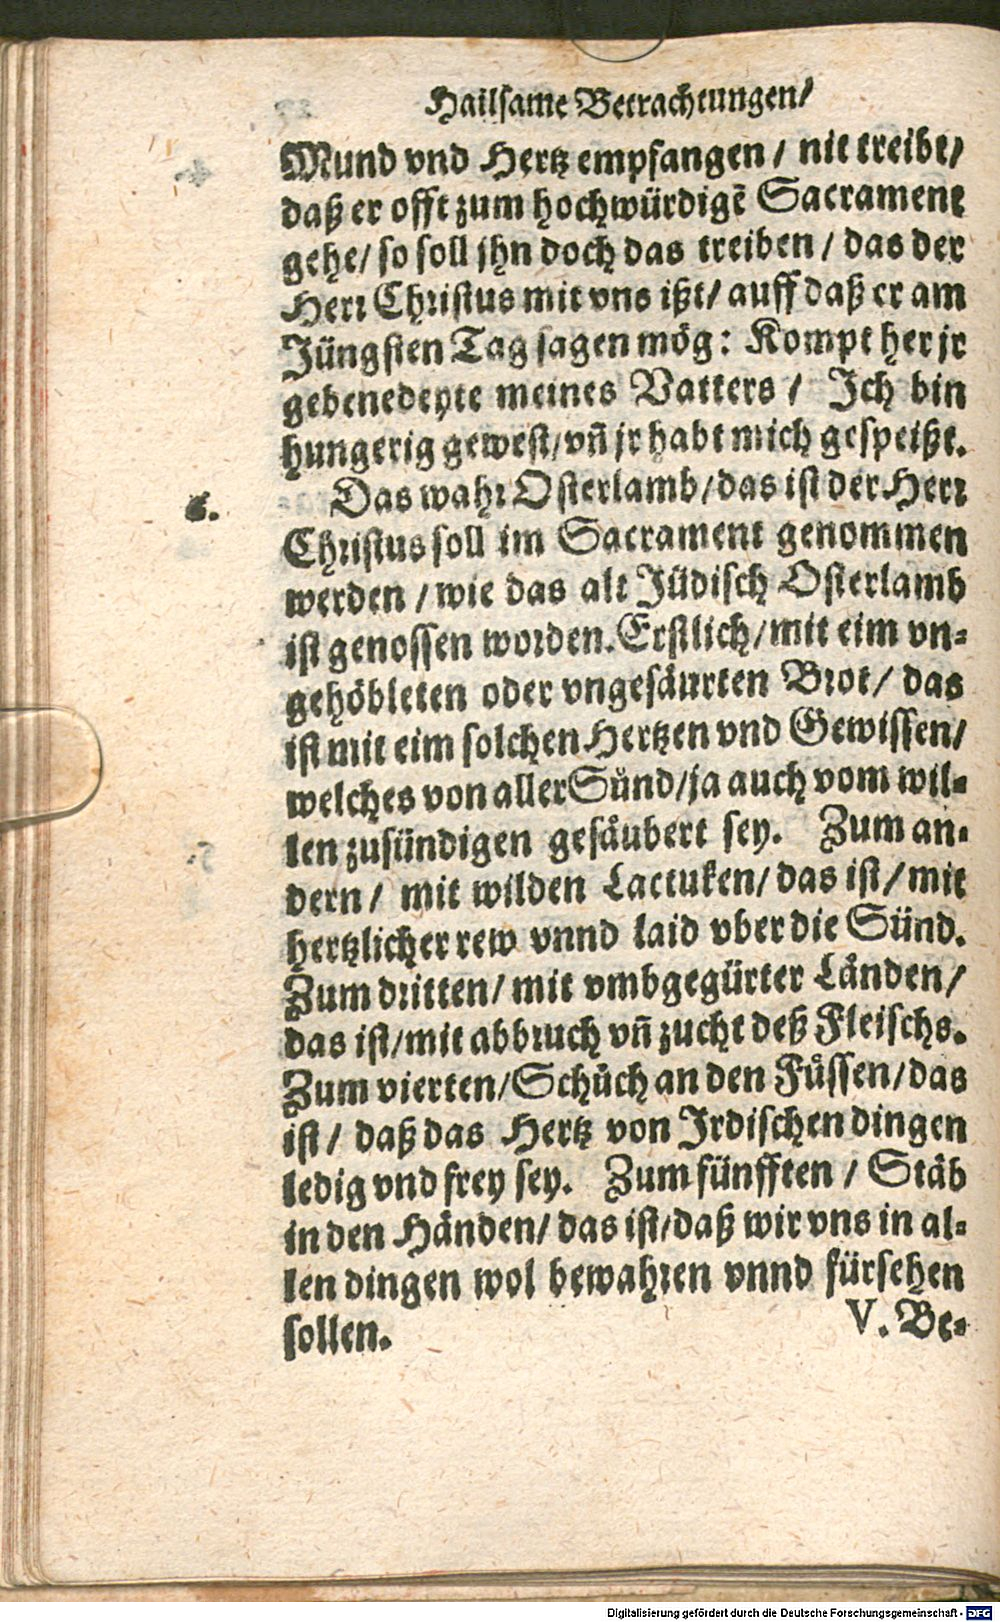 Hailsame Betrachtungen/
Mund vnd Hertz empfangen / nit treibt/
daß er offt zum hochwürdigē Sacrament
gehe/ so soll jhn doch das treiben / das der
Herr Christus mit vns ißt/ auff daß er am
Jüngsten Tag sagen mög: Kompt her jr
gebenedeyte meines Vatters / Ich bin
hungerig gewest/ vn̄ jr habt mich gespeißt.
6. Das wahr Osterlamb/ das ist der Herr
Christus soll im Sacrament genommen
werden / wie das alt Jüdisch Osterlamb
ist genossen worden. Erstlich/ mit eim vn-
gehöbleten oder vngesäurten Brot/ das
ist mit eim solchen Hertzen vnd Gewissen/
welches von aller Sünd/ ja auch vom wil-
len zusündigen gesäubert sey. Zum an-
dern/ mit wilden Lactuken/ das ist/ mit
hertzlicher rew vnnd laid vber die Sünd.
Zum dritten/ mit vmbgegürter Länden/
das ist/ mit abbruch vn̄ zucht deß Fleischs.
Zum vierten/ Schůch an den Füssen/ das
ist/ daß das Hertz von Irdischen dingen
ledig vnd frey sey. Zum fünfften / Stäb
in den Händen/ das ist/ daß wir vns in al-
len dingen wol bewahren vnnd fürsehen
sollen.
V. Be-
Digitalisierung gefördert durch die Deutsche Forschungsgemeinschaft - DFG